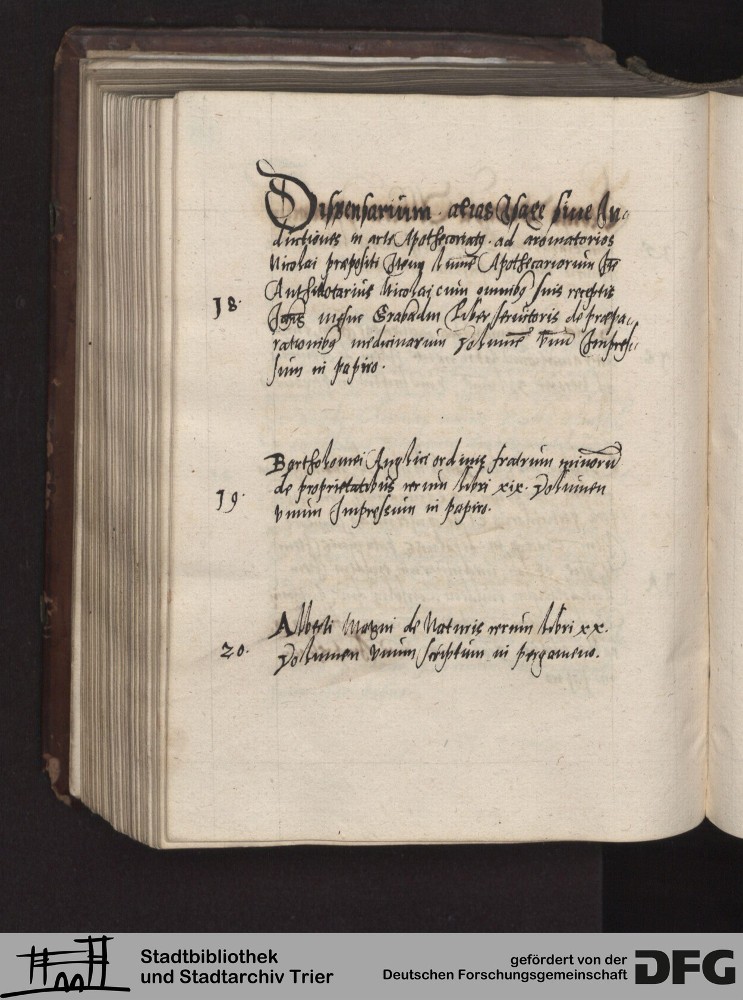 Dispensarium alias Isagoge siue In
ductiones in arte Apothecoriatus ad aromatorios
Nicolai præpositi Item lumen Apothecariorum Itē
Antidotarius Nicolai cum omnibus suis receptis
18. Grabadin Liber seruitoris de præpa
rationibus medicinarum Volumē vnū Impres
sum in papiro.
Bartholomei Anglici ordinis fratrum minorū
19. de proprietatibus rerum libri xix. Volumen
vnum Impressum in papiro.
Alberti Magni de Naturis rerum libri xx.
20. Volumen vnum scriptum in pergameno.
Stadtbibliothek
und Stadtarchiv Trier
gefördert von der
Deutschen Forschungsgemeinschaft
DFG